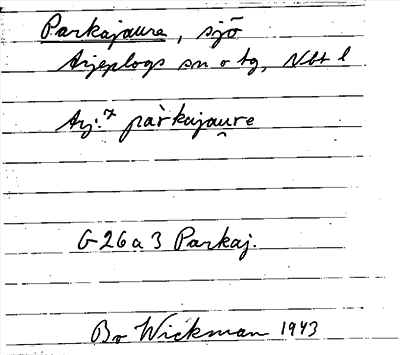 Parkajaure, sjö
Arjeplogs sn o tg, Nbt l
Arj.⁷ pàrkajau̯re
G 26 a 3 Parkaj.
Bo Wickman 1943